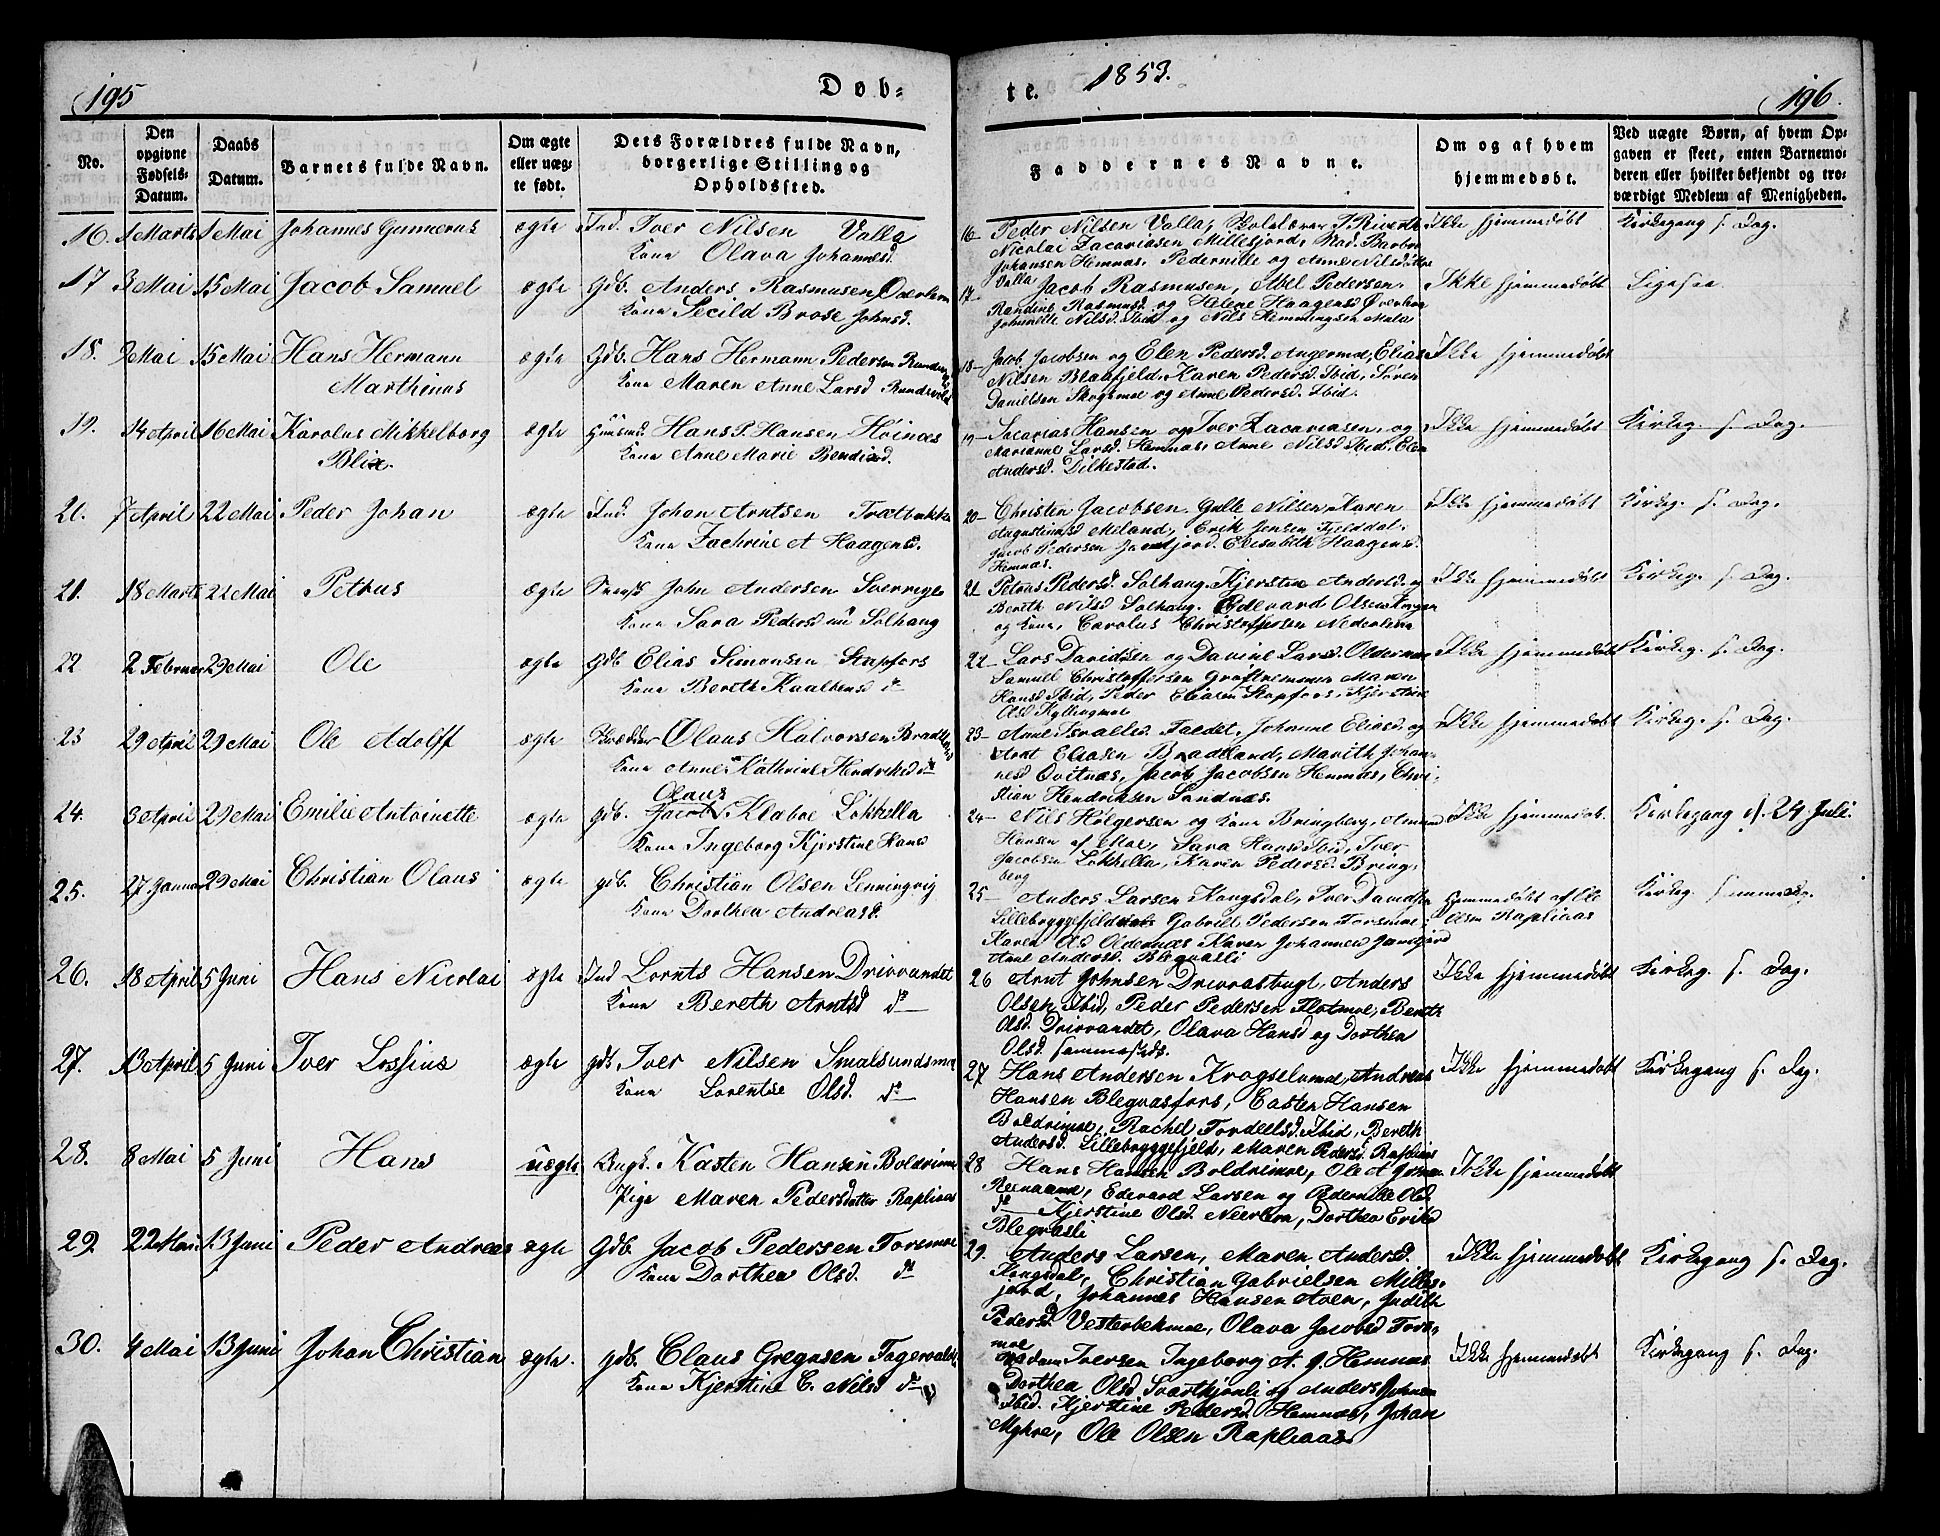 195
Døb-
te.
1853.
196.
No.
Den opgivne Fødsels-Datum.
Daabs Datum.
Barnets fulde Navn.
Om ægte eller uæg-te født.
Dets Forældres fulde Navn, borgerlige Stilling og Opholdssted.
Faddernes Navne.
Om og af hvem hjemmedøbt.
Ved uægte Børn, af hvem Op-gaven er skeet, enten Barnemo-deren eller hvilket bekjendt og tro-værdigt Medlem af Menigheden.
16. 1 Marts 1 Mai Johannes Gunnerus ægte Ind. Iver Nilsen Valla
Kona Olava Johannesd.
16- Peder Nilsen Valla,
Nicolai Zacariasen Millesjord,
Johansen Hemnæs. Pedernille og Anne Nilsdøttre
Valla
Ikke hjemmedøbt Kirkegang s. Dag.
17 3 Mai 15 Mai Jacob Samuel ægte Gdb. Anders Rasmusen Overleen
Kona Secild Brose Johnsd.
17- Jacob Rasmusen, Abel Pedersen.
Randine Rasmusd og Helene Haagensd Øverleen
Johnette Nilsd. Ibid og Nils Hemmingsen Mula
Ikke hjemmedøbt Ligesaa
18. 9 Mai 15 Mai Hans Hermann
Marthinus
ægte Gdb. Hans Hermann Pedersen
Kona Maren Anne Larsd
18- Jacob Jacobsen og Elen Pedersd. Angermoe, Elias
Nilsen Blaafjeld, Karen Pedersd. Ibid, Søren
Danielsen Skogmoe og Anne Pedersd. Ibid.
Ikke hjemmedøbt
19. 14 April 16 Mai Karolus Mikkelborg
Blix.
ægte Huusmd. Hans P. Hansen Høinæs
Kona Anne Marie Bendixd.
19- Sacarias Hansen og Iver Zacariasen, og
Marianne Larsd. Hemnæs, Anne Nilsd Ibid, Elen
Andersd. Dilkestad.
Ikke hjemmedøbt Kirkeg. s. Dag.
21. 7 April 22 Mai Peder Johan ægte Ind. Johan Arntsen Trætbakken
Kona Zachrine A Haagensd.
20- Christen Jacobsen. Gulle Nilsen, Karen
Augustinusd Meland, Erik Jensen Fjelddal.
Jacob Pedersen Elisabeth Haagensd.
Hemnæs.
Ikke hjemmedøbt Kirkeg. s. Dag.
21. 18 Marts 22 Mai Petrus ægte Svensk John Andersen Sverrige
Kona Sara Pedersd nu Solhaug
21 Petrus Pedersd. Solhaug. Kjerstine Andersd. og
Bereth Nilsd Solhaug. Edevard Olsen
og Kona, Carolus Christoffersen Nederleen
Ikke hjemmedøbt Kirkeg. s. Dag.
22 2 Februar 29 Mai Ole ægte Gdb Elias Simonsen Stapfors
Kona Bereth Kaalbensd do
22- Lars Davidsen og Davine Larsd. Oldermoe
Samuel Christoffersen Grøftremmen Maren
Hansd Ibid, Peder Eliasen Stapfors, Kjerstine
Olsd Kyllingmoe
Ikke hjemmedøbt Kirkeg. s. Dag.
23 29 April 29 Mai Ole Adolff ægte Olaus Halvorsen Bradtland
Kona Anne Kathrine Hendriksd do
23- Anne Israelsd. Faldet, Johanna Eliasd. og
Arnt Eliasen Bradtland, Marith Johan-
nesd Qvitnæs, Jacob Jacobsen Hemnæs, Chri-
stian Hendriksen Sandnæs.
Ikke hjemmedøbt Kirkeg. s. Dag.
24. 3 April 29 Mai Emilie Antoinette ægte Gdb. Olaus
Jacob Klaboe Løkkella
Kona Ingeborg Kjerstine Hansd
24- Nils Holgersen og Kona Bringberg,
Hansen af Moe, Sara Hansd Ibid, Iver
Jacobsen Løkkella, Karen Pedersd. Bring-
berg
Ikke hjemmedøbt. Kirkegang d. 24 Juli.
25. 27 Januar 29 Mai Christian Olaus ægte Gdb. Christian Olsen Lenningvig
Kona Dorthea Andreasd.
25- Anders Larsen Kongsdal, Iver Davidsen
Lillebryggefjeld Gabriel Pedersen Forsmoe,
Karen Olsd Oldernæs Karen Johannesd
Anne Andersd. Blegvasli
Hjemmedøbt af Ole
Olsen Rapliaas
Kirkeg. samme Dag.
26. 18 April 5 Juni Hans Nicolai ægte Ind Lornts Hansen Drivvandet
Kona Bereth Arntsd do
26 Arnt Johnsen Drevvasbugt, Anders
Olsen Ibid, Peder Pedersen Flotmoe, Bereth
Olsd. Drivvandet, Olava Hansd og Dorthea
Olsd. sammesteds.
Ikke hjemmedøbt Kirkeg. s. Dag.
27. 13 April 5 Juni Iver Lossius ægte Gdb Iver Nilsen Smalsundsmoe
Kona Lorentse Olsd. do
27 Hans Andersen Krogselvmoe, Andreas
Hansen Blegvasfors, Casten Hansen
Boldrimoe, Rachel Tordelsd. Ibid, Bereth
Andersd. Lillebryggefjeld, Maren Pedersd. Rapliaas
Ikke hjemmedøbt Kirkegang s. Dag.
28. 8 Mai 5 Juni Hans uægte Ungk. Kasten Hansen Boldrimoe
Pige Maren Pedersdatter Rapliaas
28 Hans Hansen Boldrimoe, Ole A
Edevard Larsen og Pedernille Olsd.
do Kjerstine Olsd. Neerleen, Dorthea Eriksd
Blegvasli
Ikke hjemmedøbt
29. 22 Mai 13 Juni Peder Andreas ægte Gdb. Jacob Pedersen Forsmoe
Kona Dorthea Olsd. do
29. Anders Larsen, Maren Andersd.
Kongsdal, Christian Gabrielsen Milles-
jord, Johannes Hansen Aven, Judith
Pedersd. Vesterbekmoe, Olava Jacobsd Fors-
moe
Ikke hjemmedøbt Kirkegang s. Dag.
30. 4 Mai 13 Juni Johan Christian ægte. Gdb. Claus Gregusen Fagervolden
Kona Kjerstine C. Nilsd do
Madam Iversen Ingeborg A. J. Hemnæs
Dorthea Olsd. Svarthjønli og Anders Johnsen
Ibid. Kjerstine Pedersd. Hemnæs, Johan
Myhre, Ole Olsen Rapliaas
Ikke hjemmedøbt Kirkegang s. Dag.